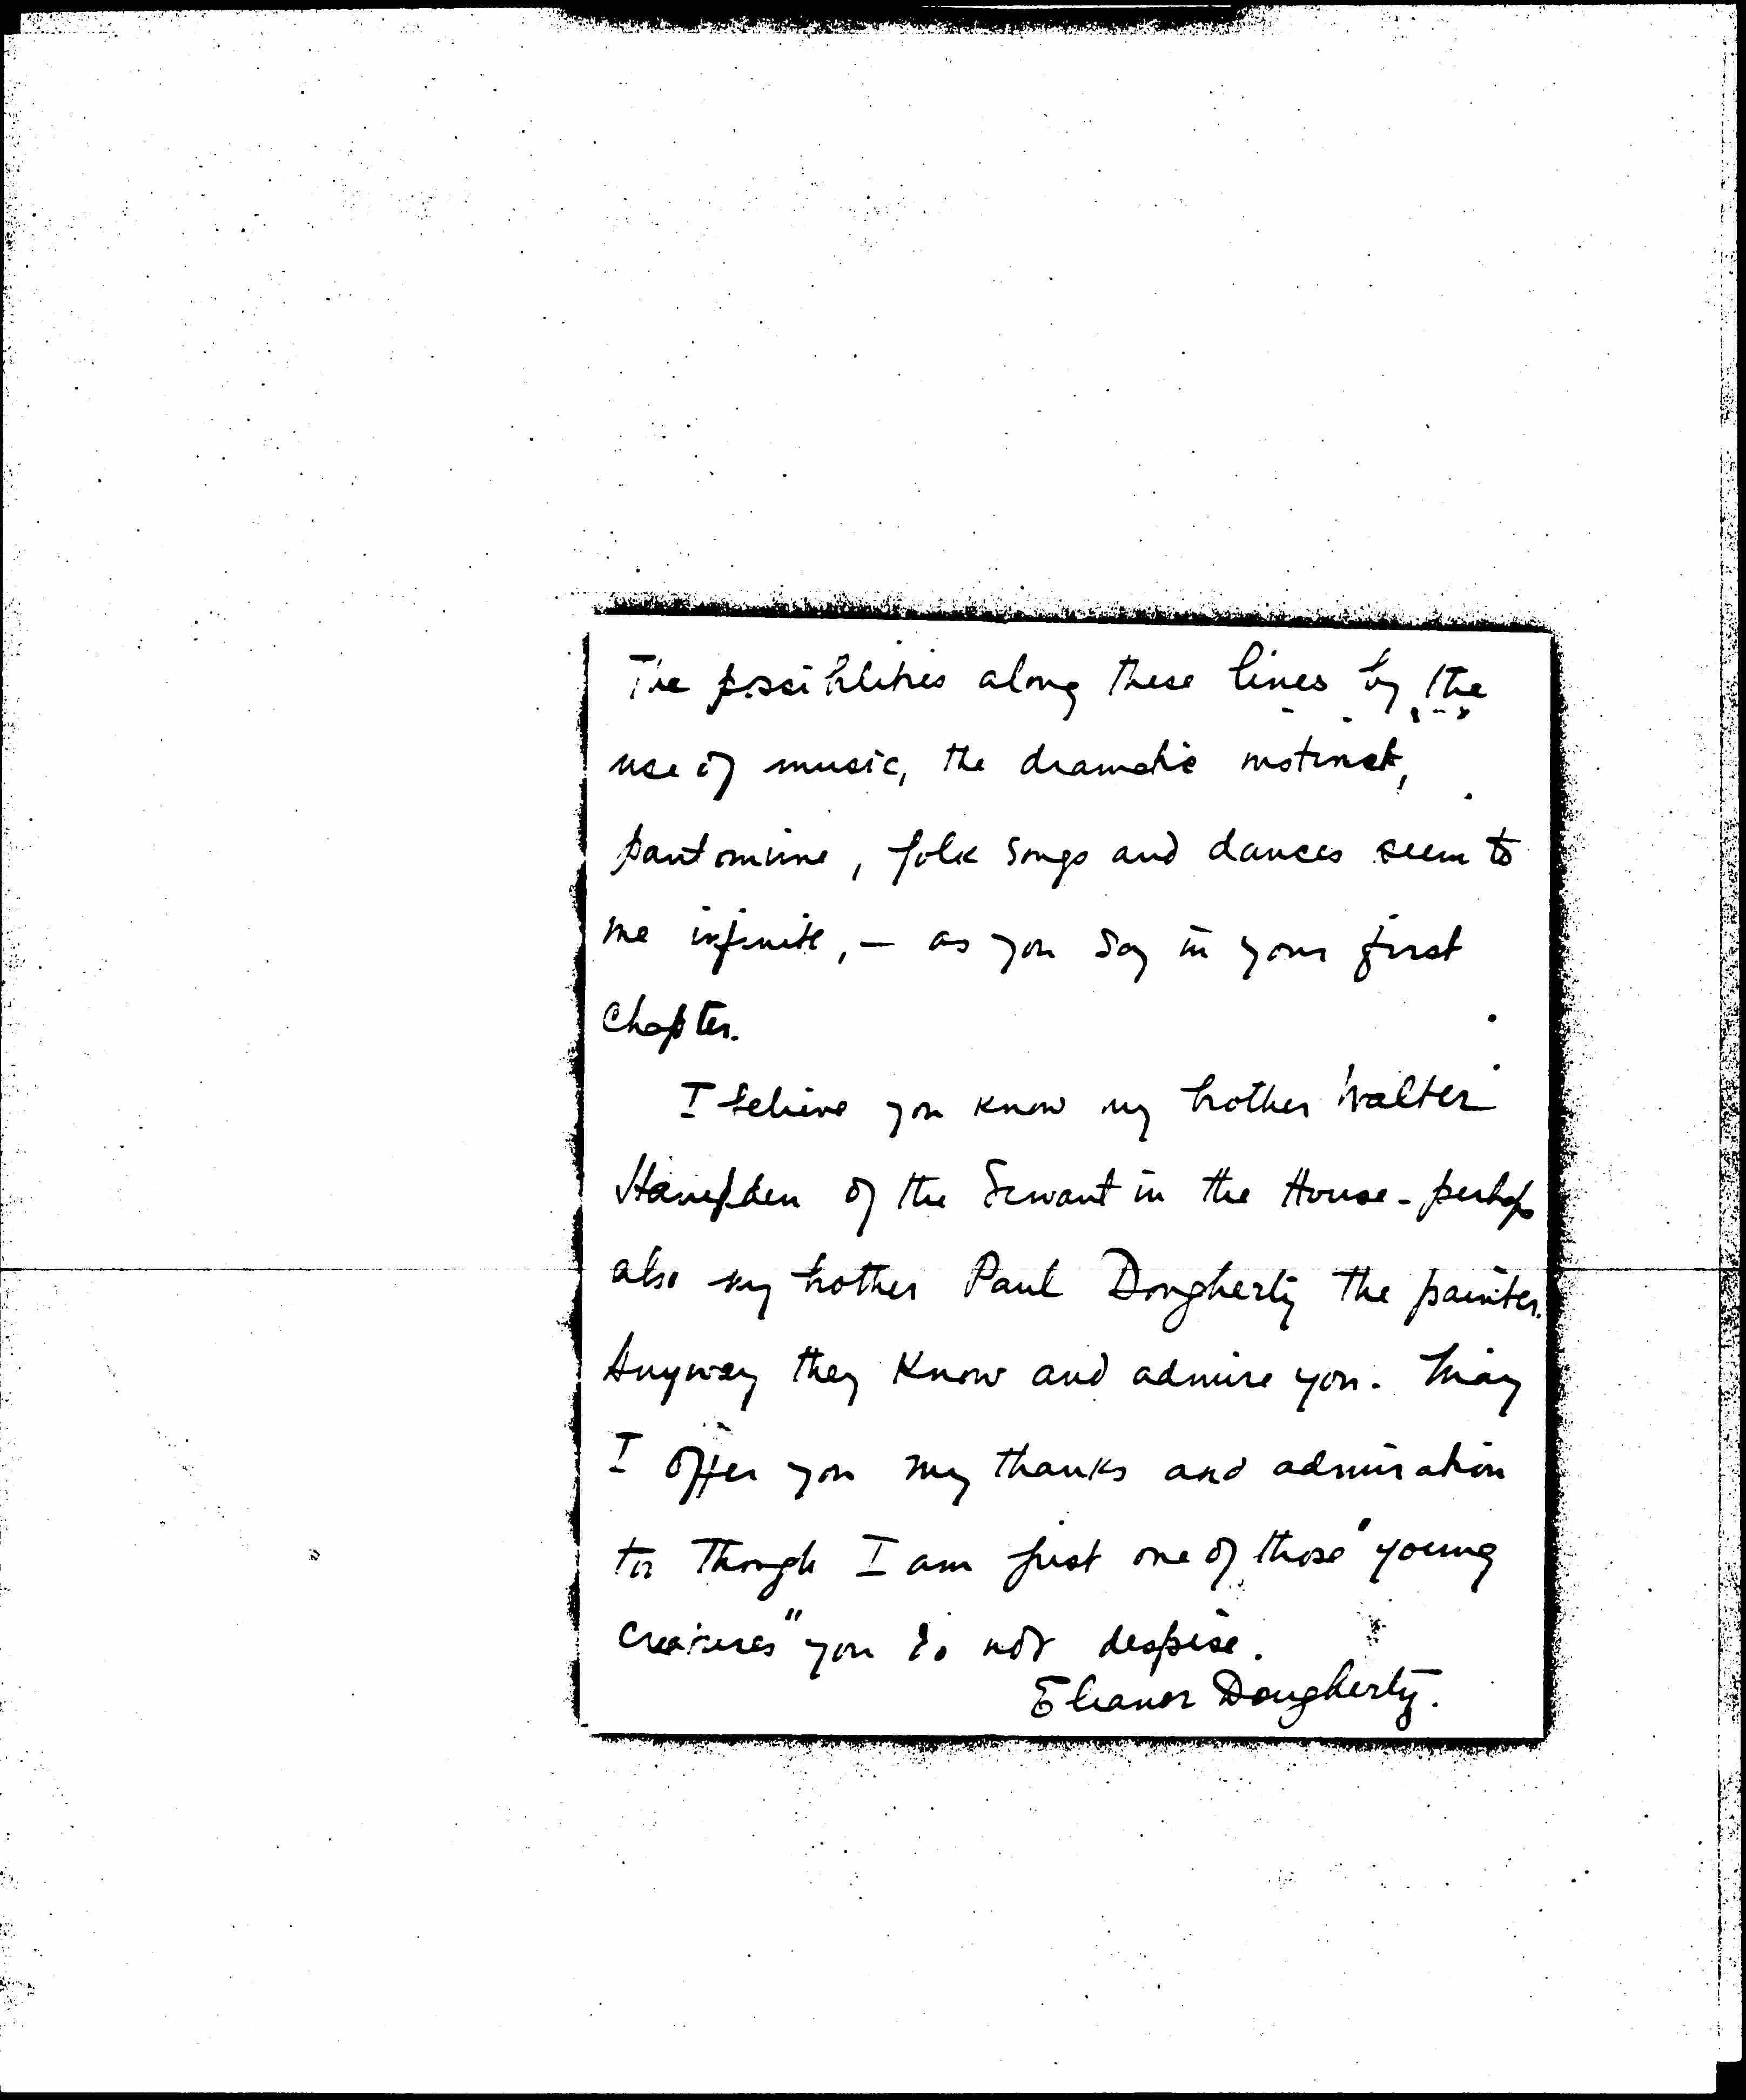 The possibilities along these lines by the
use of music, the dramatic instinct,
pantomime, folk songs and dances seem to
me infinite, — as you say in your first
Chapter.
I believe you know my brother Walter
Hampden of the Servant in the House - perhaps
also my brother Paul Dougherty the painter.
Anyway they know and admire you. May
I offer you my thanks and admiration
too though I am just one of those "young
creatures" you do not despise.
Eleanor Dougherty.